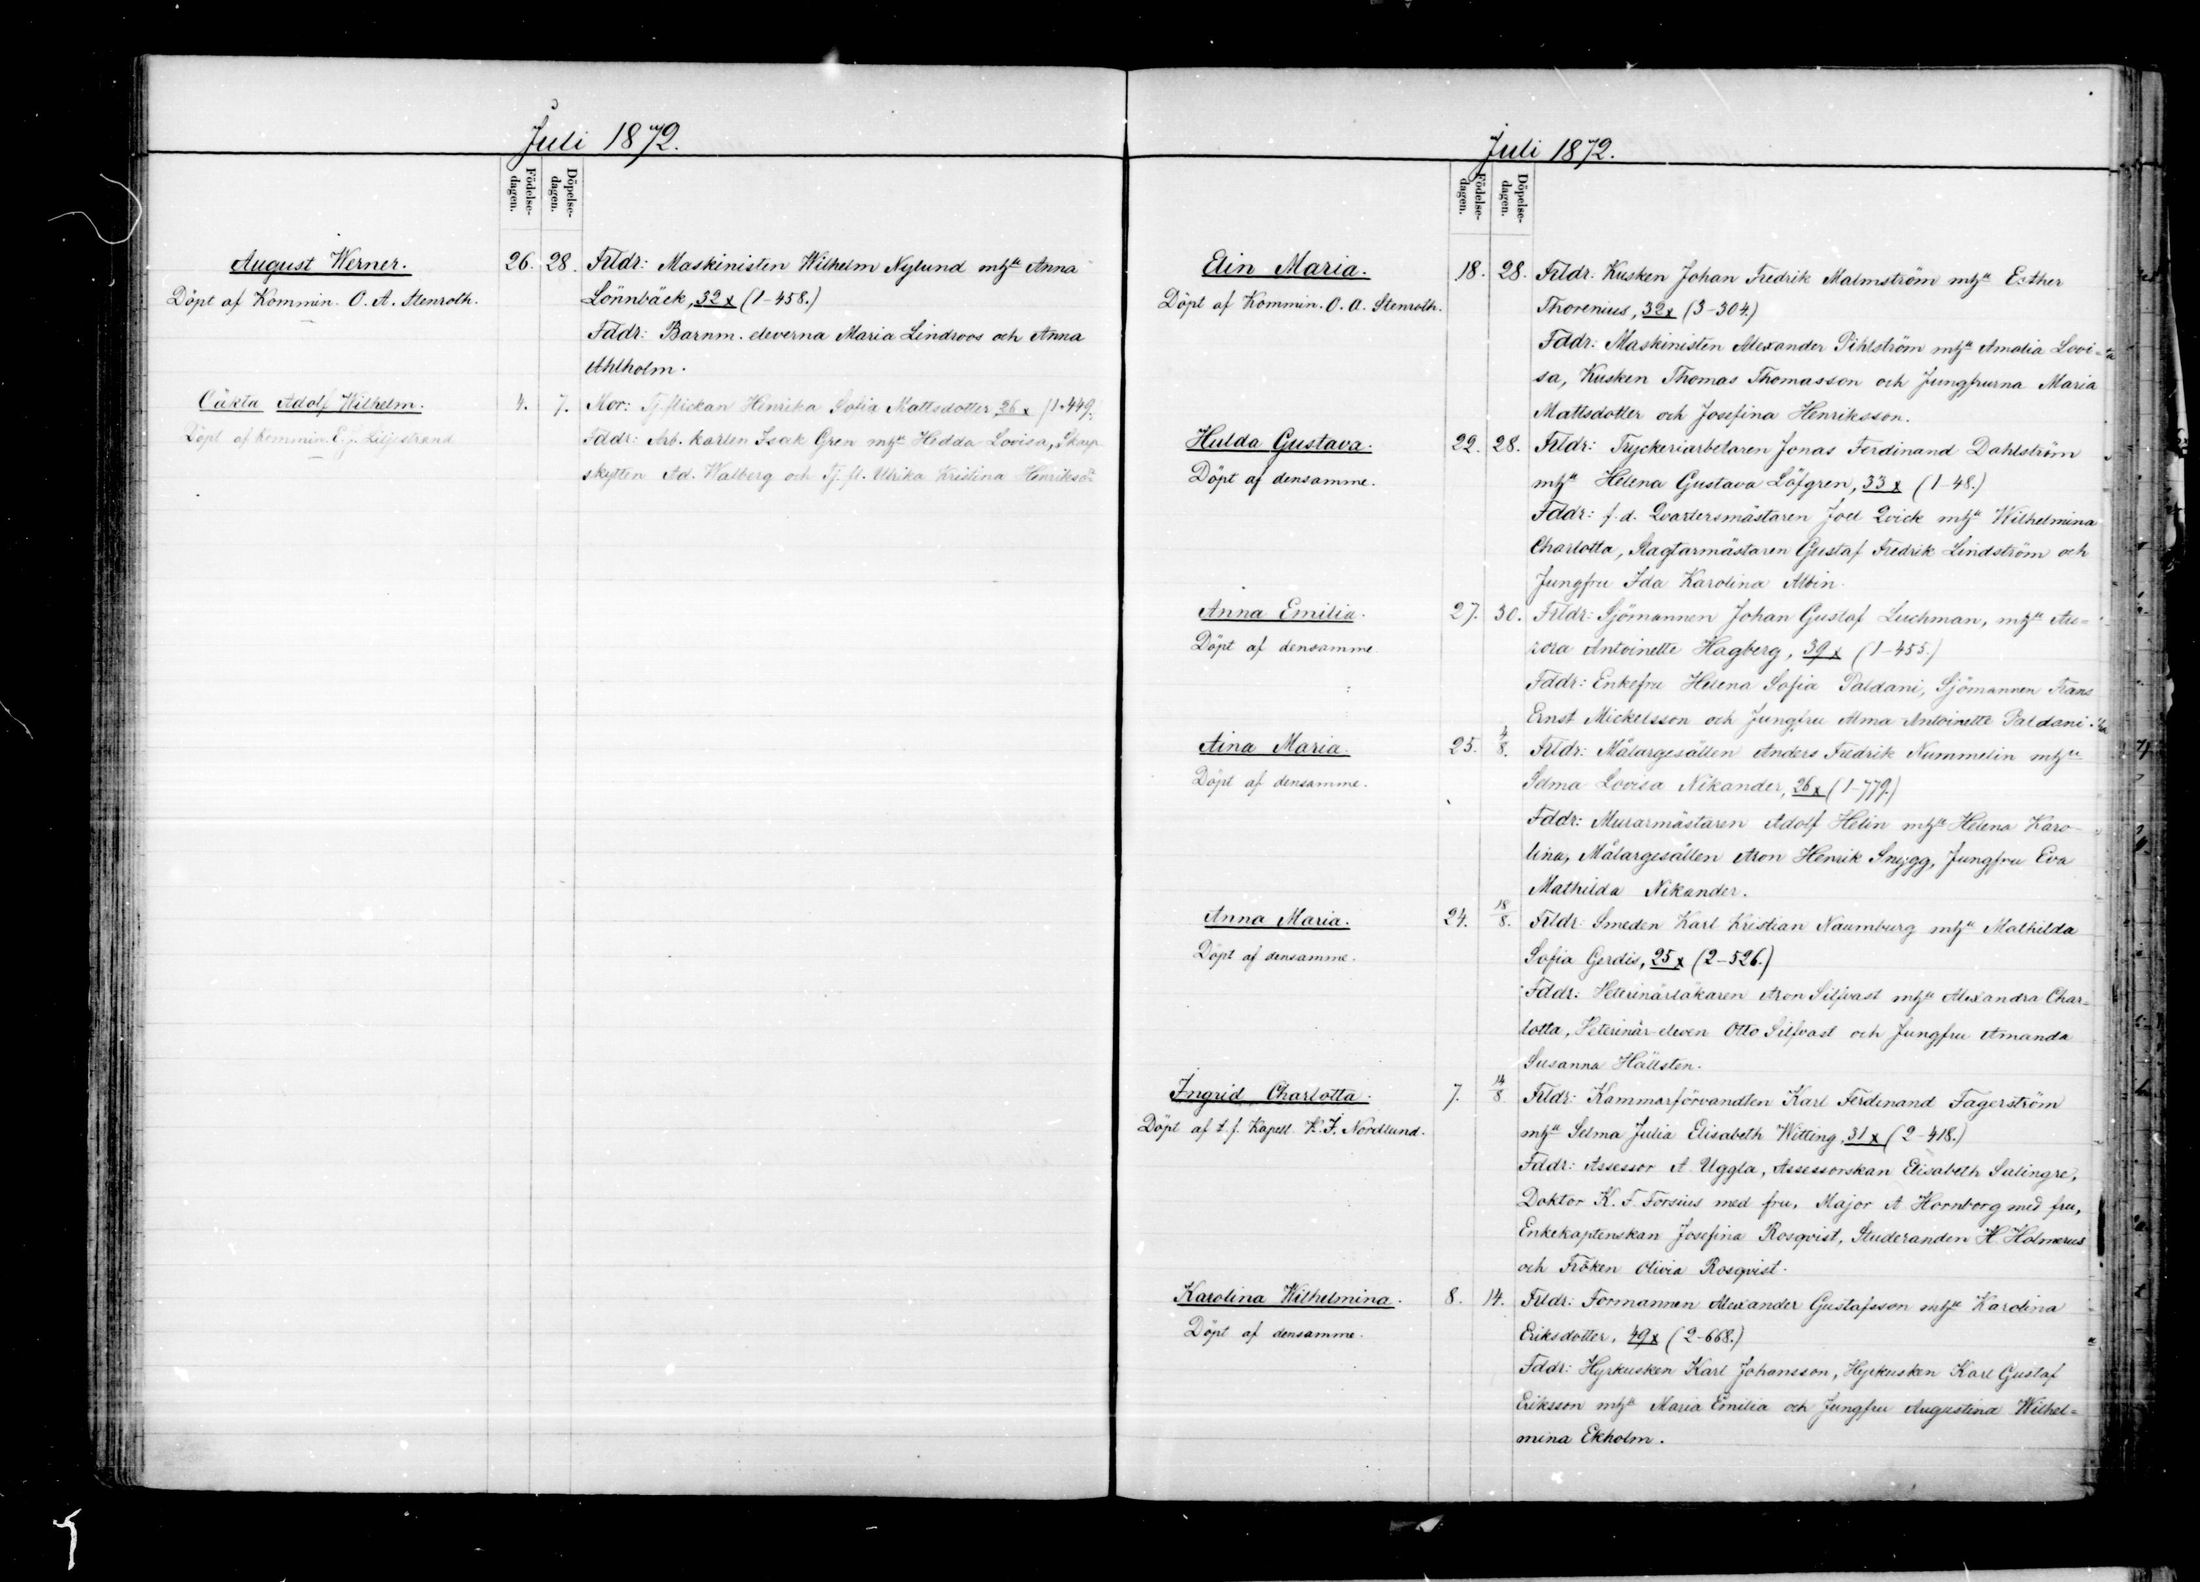 Juli 1872.
Födelse-
dagen.
Döpelse-
dagen.
August Werner. 26. 28. Frldr: Maskinisten Wilhelm Nylund mhu Anna
Döpt af Kommin. O. A. Stenroth. Lönnbäck, 32 x (1-458.)
Fddr: Barnm. eleverna Maria Lindroos och Anna
Ahlholm.
Oäkta Adolf Wilhelm. 4. 7. Mor: Tj. flickan Henrika Sofia Mattsdotter, 26 x (1-449.
Döpt af Kommin. E. J. Liljestrand Fddr: Arb. karlen Isak Gren mhu Hedda Lovisa, Skarp
skytten Ad. Walberg och Tj. fl. Ulrika Kristina Henriksd.
Juli 1872.
Födelse-
dagen.
Döpelse-
dagen.
Elin Maria. 18. 28. Frldr. Kusken Johan Fredrik Malmström mhu Esther
Döpt af Kommin. O. A. Stenroth. Thorenius, 32 x (3-304.)
Fddr: Maskinisten Alexander Pihlström mhu Amalia Lovi-
sa, Kusken Thomas Thomasson och Jungfrurna Maria
Mattsdotter och Josefina Henriksson.
Hulda Gustava. 22. 28. Frldr: Tryckeriarbetaren Jonas Ferdinand Dahlström
Döpt af densamme. mhu Helena Gustava Löfgren, 33 x (1-48.)
Fddr: f. d. Qvartersmästaren Joel Qvick mhu Wilhelmina
Charlotta, Slagtarmästaren Gustaf Fredrik Lindström och
Jungfru Ida Karolina Albin.
Anna Emilia. 27. 30. Frldr: Sjömannen Johan Gustaf Luchman, mhu Au=
Döpt af densamme. rora Antoinette Hagberg, 39 x (1-455.)
Fddr: Enkefru Helena Sofia Paldani, Sjömannen Frans
Ernst Mickelsson och Jungfru Alma Antoinette Paldani.
Aina Maria. 25. 4/8. Frldr: Målargesällen Anders Fredrik Nummelin mhu
Döpt af densamme. Selma Lovisa Nikander, 26 x (1-779.)
Fddr: Murarmästaren Adolf Helin mhu Helena Karo-
lina, Målargesällen Aron Henrik Snygg, Jungfru Eva
Mathilda Nikander.
Anna Maria. 24. 18/8. Frldr: Smeden Karl Kristian Naumburg mhu Mathilda
Döpt af densamme. Sofia Gerdis, 25 x (2-526.)
Fddr: Veterinärläkaren Aron Silfvast mhu Alexandra Char-
lotta, Veterinär-eleven Otto Silfvast och Jungfru Amanda
Susanna Hällsten.
Ingrid Charlotta. 7. 14/8 Frldr: Kammarförvandten Karl Ferdinand Fagerström
Döpt af t. f. Kapell. K. F. Nordlund. mhu Selma Julia Elisabeth Witting, 31 x (2-418.)
Fddr: Assessor A Uggla, Assessorskan Elisabeth Salingre,
Doktor K. F. Forsius med fru, Major A Hornborg med fru,
Enkekaptenskan Josefina Rosqvist, Studeranden H. Holmerus
och Fröken Olivia Rosqvist.
Karolina Wilhelmina. 8. 14. Frldr: Formannen Alexander Gustafsson mhu Karolina
Döpt af densamme. Eriksdotter, 49 x (2-668.)
Fddr: Hyrkusken Karl Johansson, Hyrkusken Karl Gustaf
Eriksson mhu Maria Emilia och Jungfru Augustina Wilhel=
mina Ekholm.